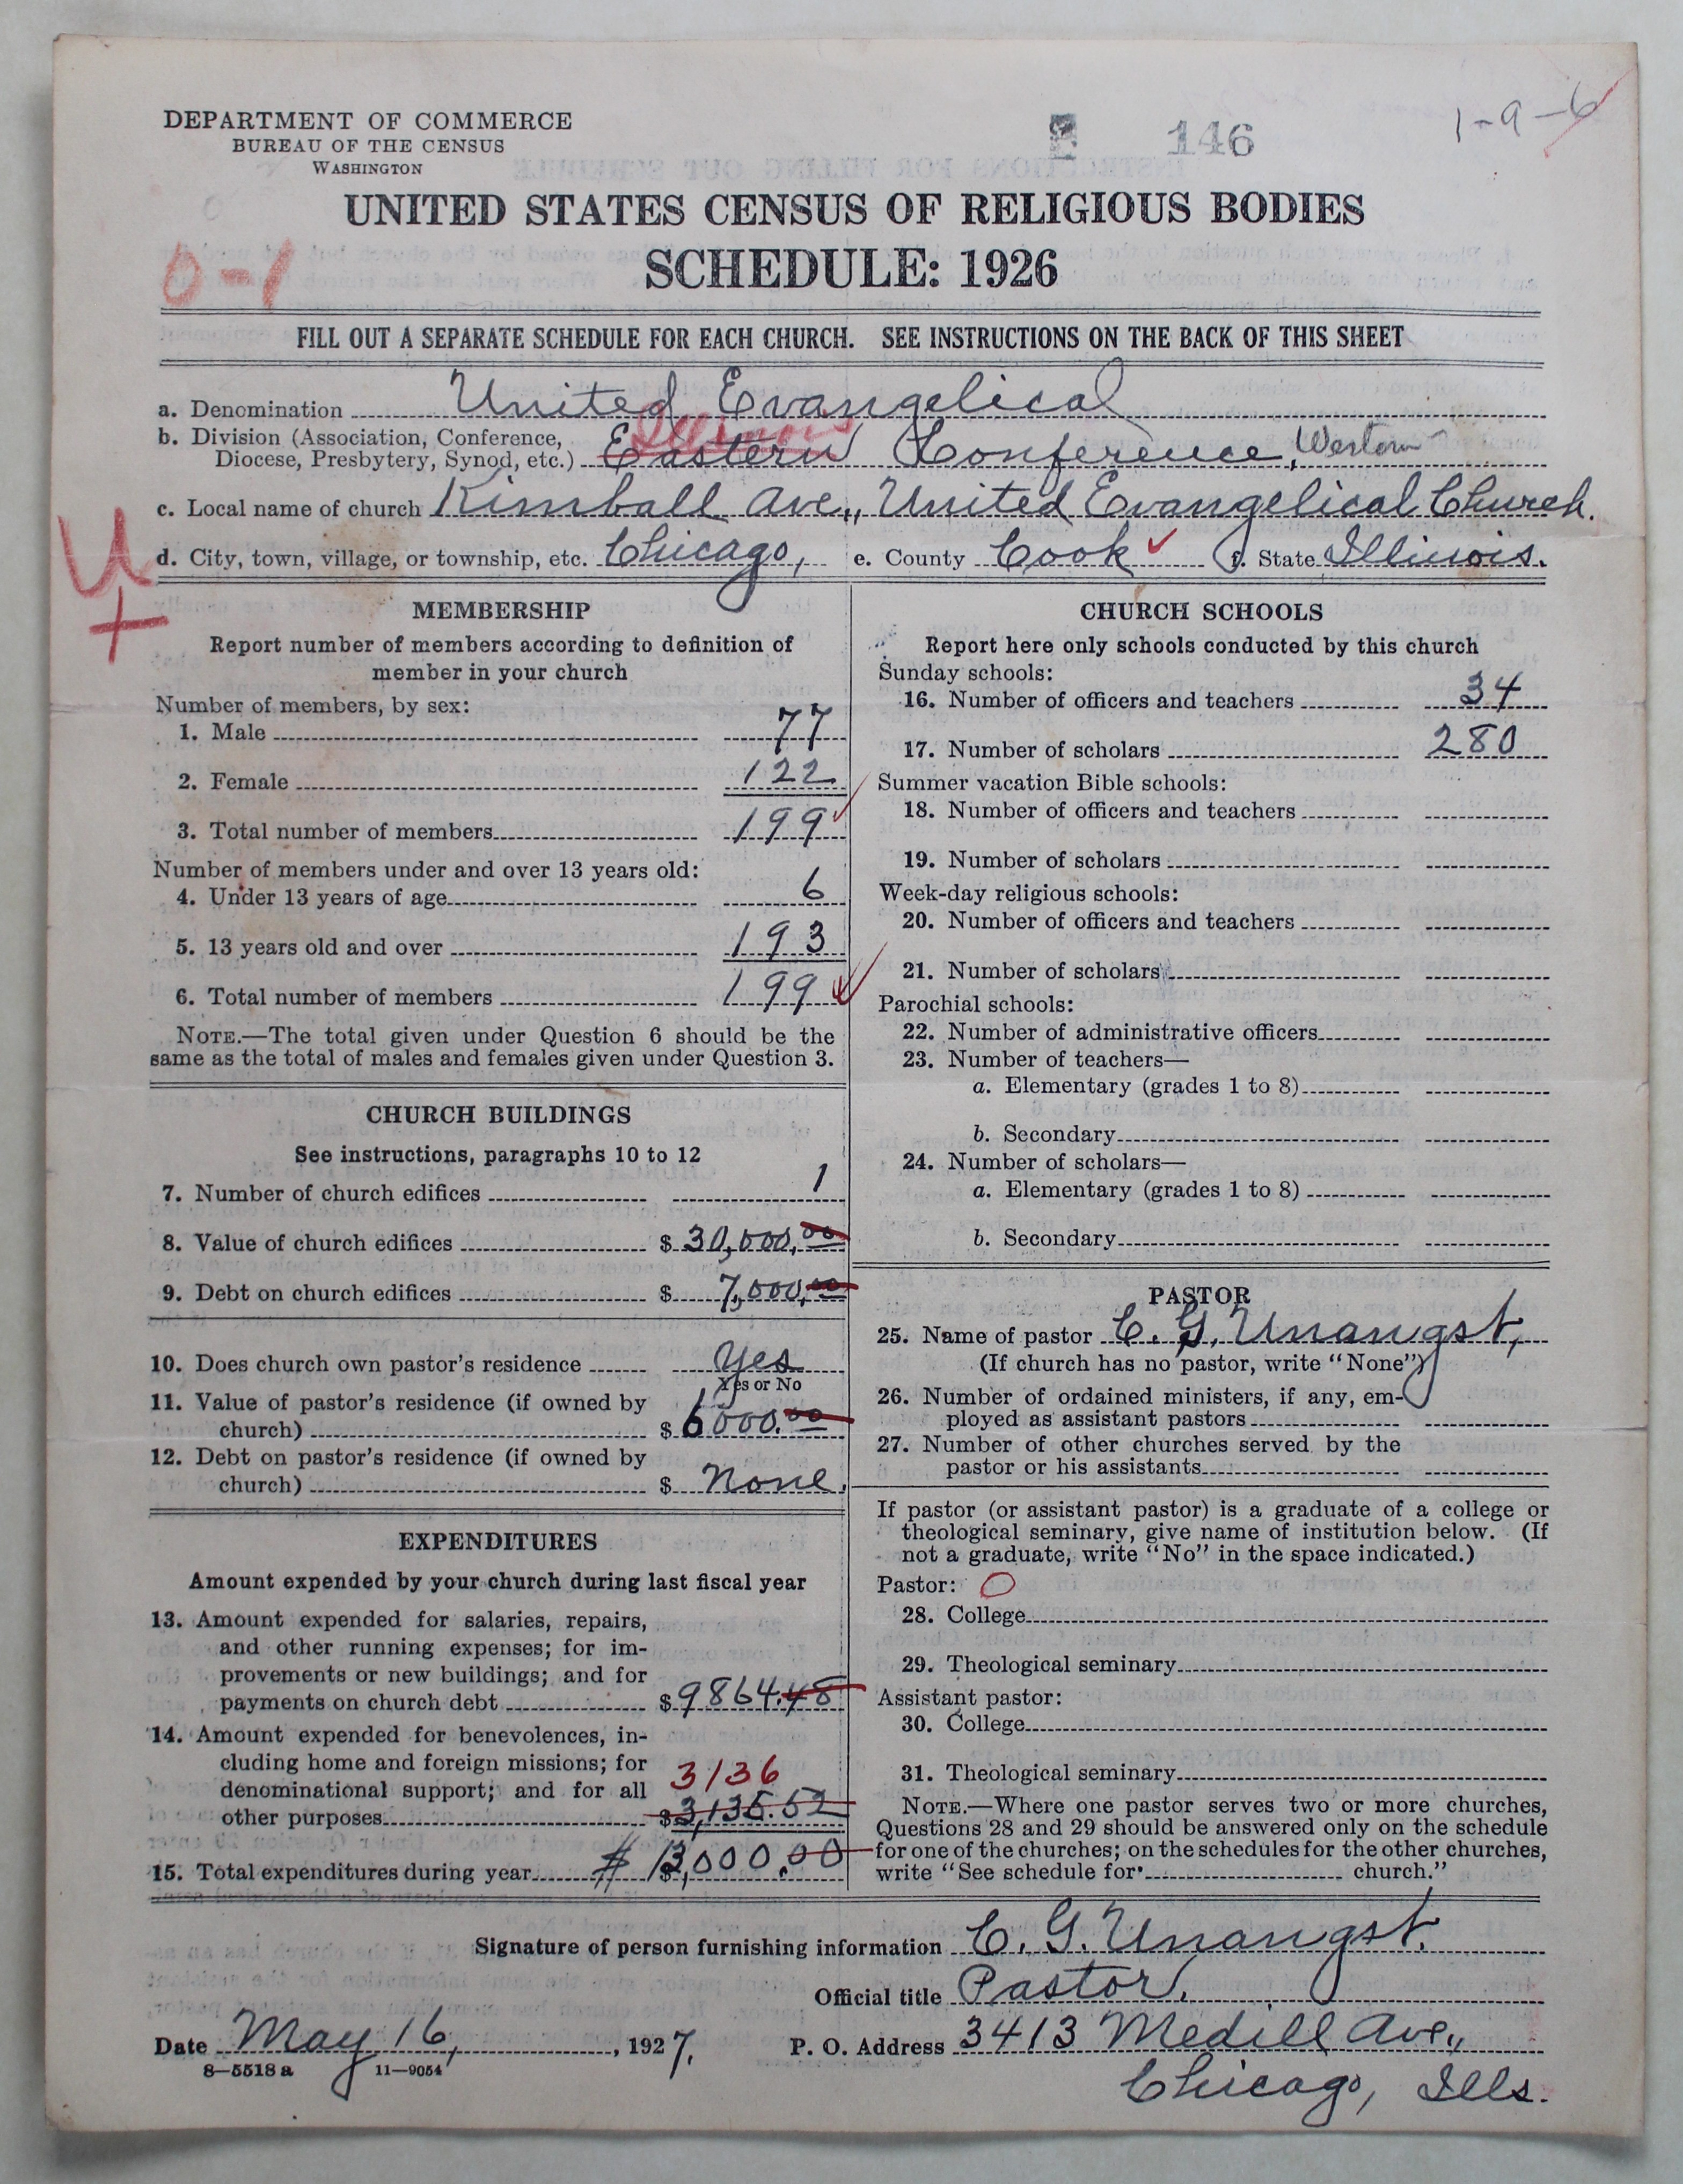 DEPARTMENT OF COMMERCE
BUREAU OF THE CENSUS
WASHINGTON
146
1-9-6
UNITED STATES CENSUS OF RELIGIOUS BODIES
SCHEDULE: 1926
0-1
FILL OUT A SEPARATE SCHEDULE FOR EACH CHURCH. SEE INSTRUCTIONS ON THE BACK OF THIS SHEET
a. Denomination United Evangelical
Illinois
b. Division (Association, Conference,
Diocese, Presbytery, Synod, etc.) Eastern Conference, Western
c. Local name of church Kimball Ave., United Evangelical Church.
d. City, town, village, or township, etc. Chicago, e. County Cook f. State Illinois.
U
+
MEMBERSHIP
Report number of members according to definition of
member in your church
Number of members, by sex:
1. Male 77
2. Female 122
3. Total number of members 199
Number of members under and over 13 years old:
4. Under 13 years of age 6
5. 13 years old and over 193
6. Total number of members 199
NOTE.—The total given under Question 6 should be the
same as the total of males and females given under Question 3.
CHURCH BUILDINGS
See instructions, paragraphs 10 to 12
7. Number of church edifices 1
8. Value of church edifices $ 30,000.00
9. Debt on church edifices $ 7,000.00
10. Does church own pastor's residence Yes
Yes or No
11. Value of pastor's residence (if owned by
church) $ 6000.00
12. Debt on pastor's residence (if owned by
church) $ None.
EXPENDITURES
Amount expended by your church during last fiscal year
13. Amount expended for salaries, repairs,
and other running expenses; for im-
provements or new buildings; and for
payments on church debt $ 9864.48
14. Amount expended for benevolences, in-
cluding home and foreign missions; for
denominational support; and for all 3136
other purposes $ 3,135.52
15. Total expenditures during year $ 13,000.00
CHURCH SCHOOLS
Report here only schools conducted by this church
Sunday schools:
16. Number of officers and teachers 34
17. Number of scholars 280
Summer vacation Bible schools:
18. Number of officers and teachers
19. Number of scholars
Week-day religious schools:
20. Number of officers and teachers
21. Number of scholars
Parochial schools:
22. Number of administrative officers
23. Number of teachers—
a. Elementary (grades 1 to 8)
b. Secondary
24. Number of scholars—
a. Elementary (grades 1 to 8)
b. Secondary
PASTOR
25. Name of pastor C. G. Unangst,
(If church has no pastor, write "None")
26. Number of ordained ministers, if any, em-
ployed as assistant pastors
27. Number of other churches served by the
pastor or his assistants
If pastor (or assistant pastor) is a graduate of a college or
theological seminary, give name of institution below. (If
not a graduate, write "No" in the space indicated.)
Pastor: O
28. College
29. Theological seminary
Assistant pastor:
30. College
31. Theological seminary
NOTE.—Where one pastor serves two or more churches,
Questions 28 and 29 should be answered only on the schedule
for one of the churches; on the schedules for the other churches,
write "See schedule for church."
Signature of person furnishing information C. G. Unangst.
Official title Pastor.
Date May 16, 1927. P. O. Address 3413 Medill Ave.,
8—5518 a 11—9054
Chicago, Ills.